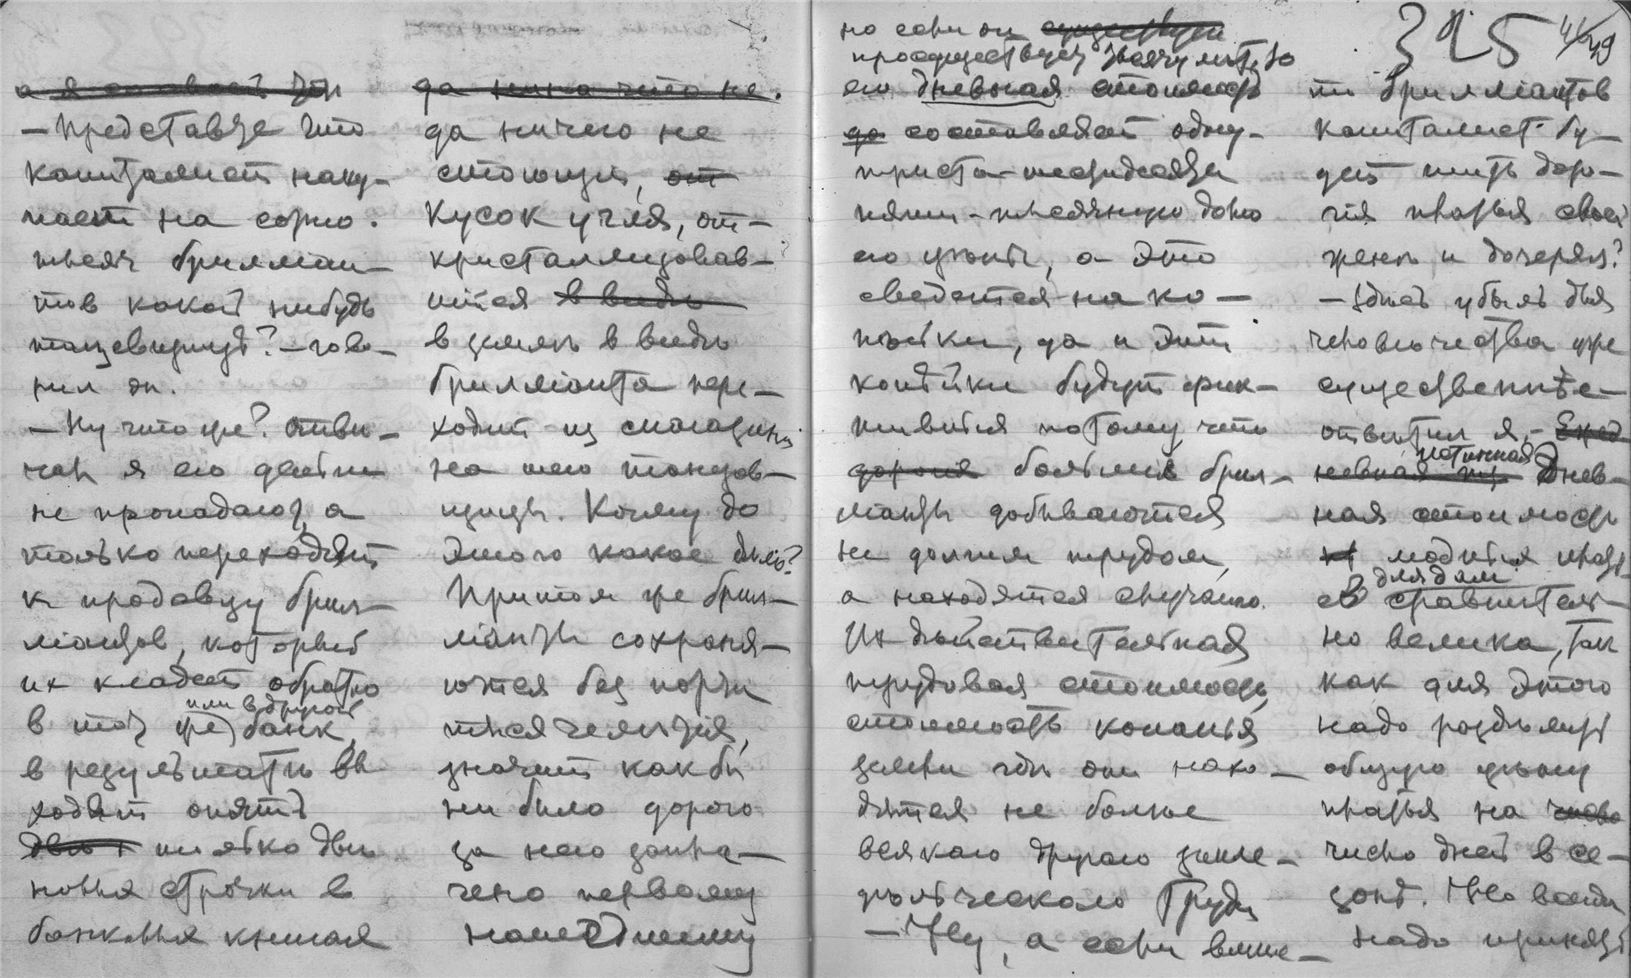 а я
— Представьте что
капиталистъ наку-
паетъ на сорок.
тысяч бриллиан-
тов какой нибудь
танцевщицѣ? — гово-
рил он.
— Ну что же? отвѣ-
чал я его деньги
не пропадают, а
только переходят
к продавцу брил-
ліантов, который
их кладет обратно
в тот же, или в другой банк,
в результатѣ вы
ходят опять
только двѣ
новыя строчки в
банковых книгах
да ничего не
стоющій,
кусок угля, от-
кристаллизовав-
шійся
в землѣ в видѣ
бриллианта пере-
ходит из магазина
на шею танцов-
щицы. Кому до
этого какое дѣло?
Притом же брил-
ліанты сохраня-
ются без порчи
тысячелѣтія,
значит как бы
ни было дорого
за него запла-
чено первому
нашедшему
но если он
просуществует тысячу лѣт, то
его дневная стоимость
составляет одну-
триста-шестидесяти
пяти-тысячную долю
его цѣны, а это
сведется на ко-
пѣйки, да и эти
копѣйки будут фик-
тивныя потому что
большіе брил-
ліанты добываются
не долгим трудом,
а находятся случайно.
Их дѣйствительная
трудовая стоимость,
стоимость копанья
земли гдѣ они нахо-
дятся не болѣе
всякаго другого земле-
дѣльческаго труда
— Ну, а если вмѣс-
то бриллиантов
капиталист бу-
дет шить доро-
гія платья своей
женѣ и дочерям?
— Здѣсь убыль для
человѣчества уже
существеннѣе —
отвѣтил я, —
истинная днев-
ная стоимость
модных плать-
ев для дам сравнитель-
но велика, так
как для этого
надо раздѣлить
общую цѣну
платья на
число дней в се-
зонѣ. Но всегда
надо принять
325